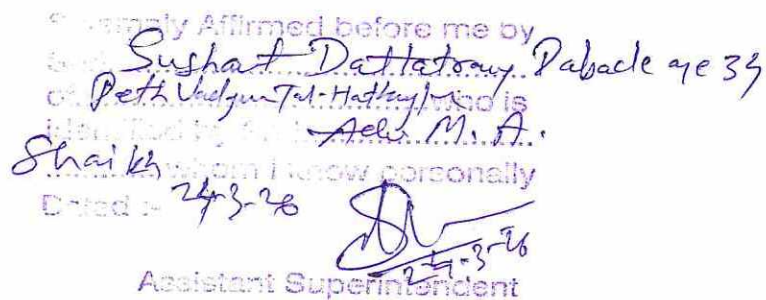 Solemnly Affirmed before me by
Sushant Dattatray Dabade age 34
of Peth Vadgaon Tal-Hatkan who is
identified by Adv. M. A.
Shaikh whom I know personally
Dated :- 24-3-26
24-3-26
Assistant Superintendent